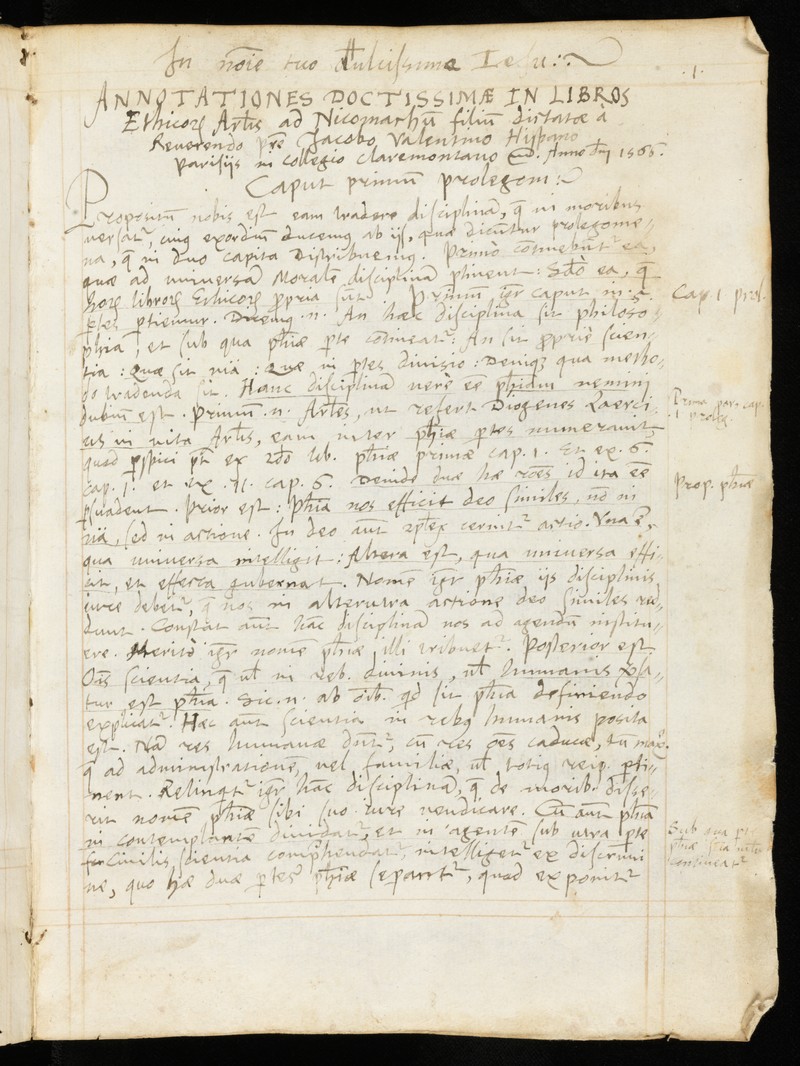 In nōie tuo dulcissime Iesu :~
.1.
ANNOTATIONES DOCTISSIMÆ IN LIBROS
Ethicoꝝ Arīs ad Nicomachū filiū dictatæ a
Reuerendo prē Jacobo Valentino Hispano
Parisijs in collegio claremontano Anno dn̄i 1565.
Caput primum prolegom:~
Propositum nobis est eam tradere disciplinā, q̄ in moribus
uersat᷑, cuiꝰ exordiū ducemꝰ ab ijs, quæ dicunt᷑ prolegome-
na, q̄ in duo capita distribuemꝰ. Primò cōtinebunt᷑ ea,
quæ ad uniuersā Moralē disciplinā ꝑtinent: Sdō ea, q̄
horꝝ libroꝝ Ethicoꝝ ꝓpria sūt. Primum igr̄ caput in
ꝑtes ptiemur. Dicemꝰ .n. An hæc disciplina sit philoso-
phia, et sub qua phiæ ꝑte contineat᷑: An sit ꝓpriè scien-
tia: Quæ sit uia: Quæ in ꝑtes diuisio: Deniqꝫ qua metho-
do tradenda sit. Hanc disciplinā uerè eē phiam nemini
dubiū est. Primum .n. Artēs, ut refert Diogenes Laerti-
us in uita Artīs, eam inter phiæ ꝑtes numerauit,
quod ꝑspici pt̄ ex 2do lib. phiæ primæ cap. 1. Et ex. 6.
cap. 1. et ex .11. cap. 6. Deinde duæ hæ rōes id ita eē
ꝑsuadent. Prior est: phia nos efficit deo similes, nō in
uia, sed in actione. In deo aūt 2plex cernit᷑ actio. Vna ē,
qua uniuersa intelligit: Altera est, qua uniuersa effi-
cit, et effecta gubernat. Nomē igr̄ phiæ ijs disciplinis
iure debet᷑, q̄ nos in alterutra actione deo similes red-
dunt. Constat aūt hāc disciplinā nos ad agendū institu-
ere. Meritò igr̄ nomē phiæ illi tribuet᷑. Posterior est
Oīs scientia, q̄ ul̄ in reb. diuinis, ul̄ humanis
tur est phia. Sic .n. ab oīb. qd sit phia definiendo
explicat᷑. Hæc aūt scientia in rebꝰ humanis posita
est. Nā res humanæ dn̄t᷑, cū res oēs caducæ, tū maxᵉ.
q̄ ad administrationē, uel familiæ, ul̄ totiꝰ reip. ꝑti-
nent. Relinqt᷑ igr̄ hāc disciplinā, q̄ de morib. disse-
rit nomē phiæ sibi suo iure uendicare. Cū aūt phia
in contemplantē diuidat᷑, et in agentē sub utra ꝑte
Ciuilis scientia comprehendat᷑, intelliget᷑ ex discrimi
ne, quo hæ duæ ꝑtes phiæ separant᷑, quod exponit᷑
Cap. 1 prol.
Prima par. cap.
1 proleg.
Prop. phiæ
Sub qua pt.
phiæ
contineat᷑